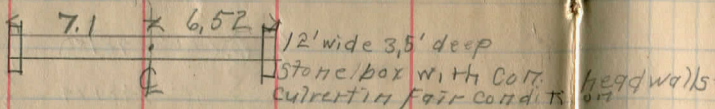 7.1 6,52
12' wide 3,5' deep
stone box with Con. headwalls
culvert in fair condition
℄